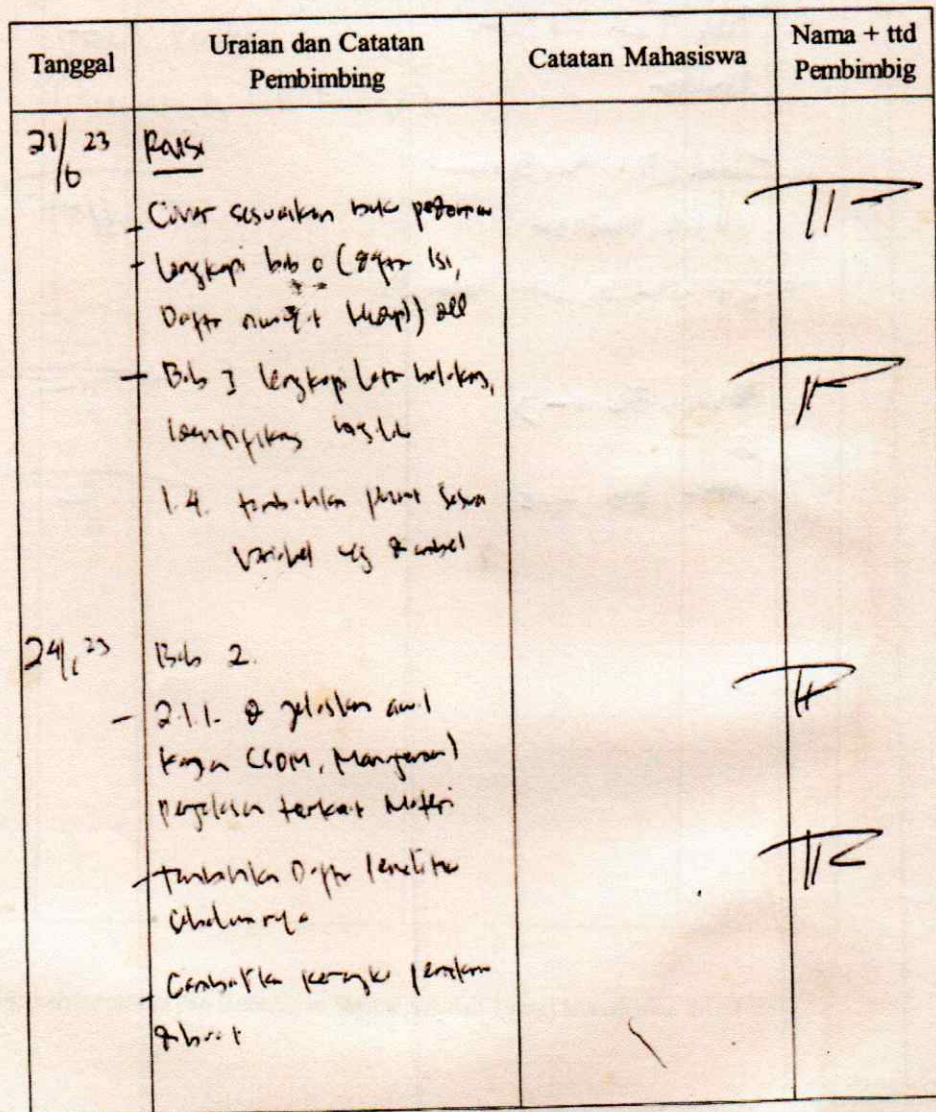 Tanggal
Uraian dan Catatan
Pembimbing
Catatan Mahasiswa
Nama + ttd
Pembimbig
21/6 23
Revisi
- Cover sesuaikan buku pedoman
- Lengkapi bab 0 (daftar isi,
Daftar
- Bab I lengkapi latar belakang,
identifikasi
1.4. tambahkan sesuai
Variabel yg diambil
24/ 23
Bab 2.
- 2.1.1. di jelaskan awal
(SDM, Manajemen)
penjelasan terkait Materi
- tambahkan Daftar penelitian
sebelumnya
- kerangka pemikiran
dibuat